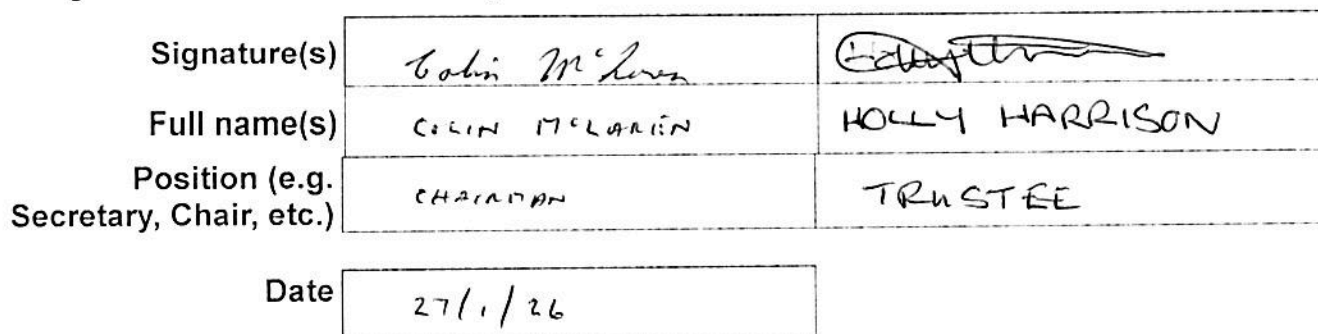 Signature(s) Colin McLaren
Full name(s) COLIN MCLAREN HOLLY HARRISON
Position (e.g.
Secretary, Chair, etc.) CHAIRMAN TRUSTEE
Date 27/1/26